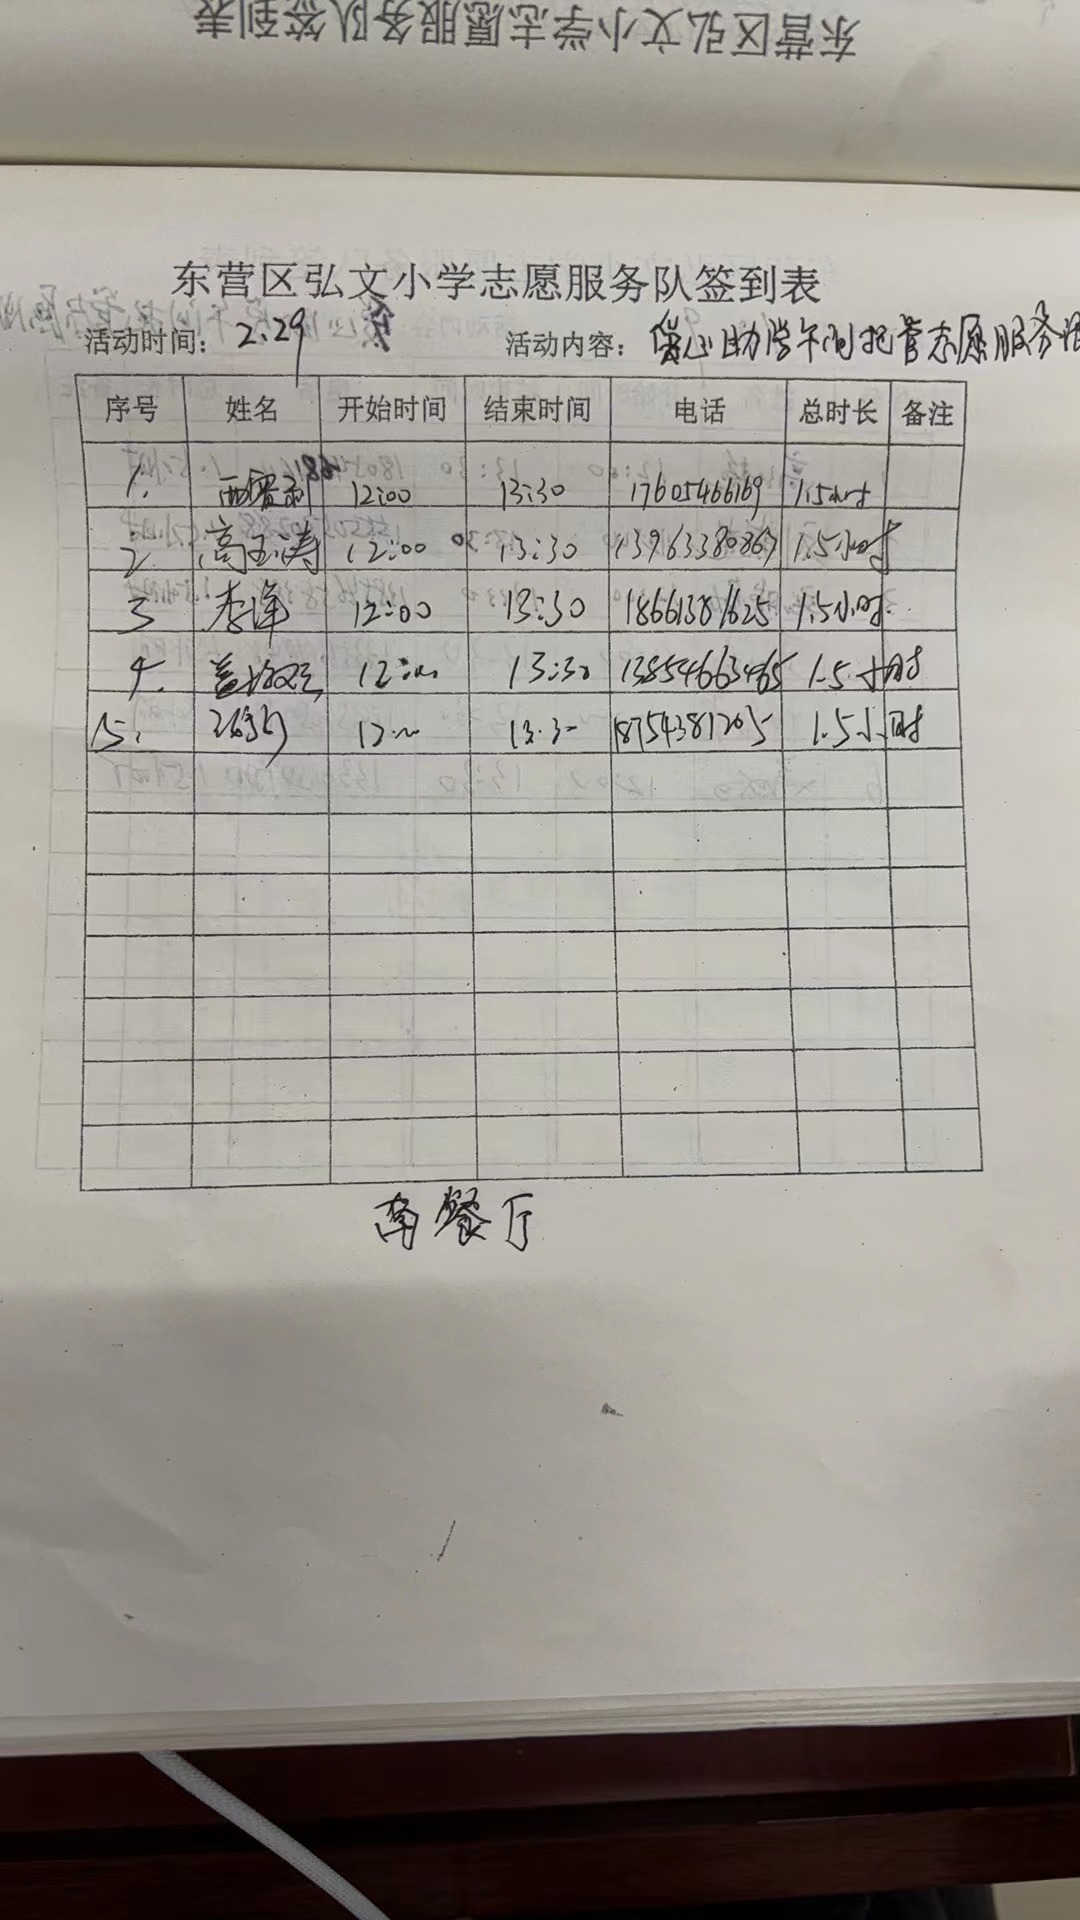 东营区弘文小学志愿服务队签到表
东营区弘文小学志愿服务队签到表
活动时间: 2.29 活动内容: 爱心助学午间托管志愿服务活
序号 姓名 开始时间 结束时间 电话 总时长 备注
1. 12:00 13:30 17605466169 1.5小时
2. 高玉涛 12:00 13:30 13963380867 1.5小时
3 李洋 12:00 13:30 18661381625 1.5小时.
4. 12:00 13:30 13854663465 1.5.小时
5. 12:00 13:30 18754381205 1.5小时
南餐厅